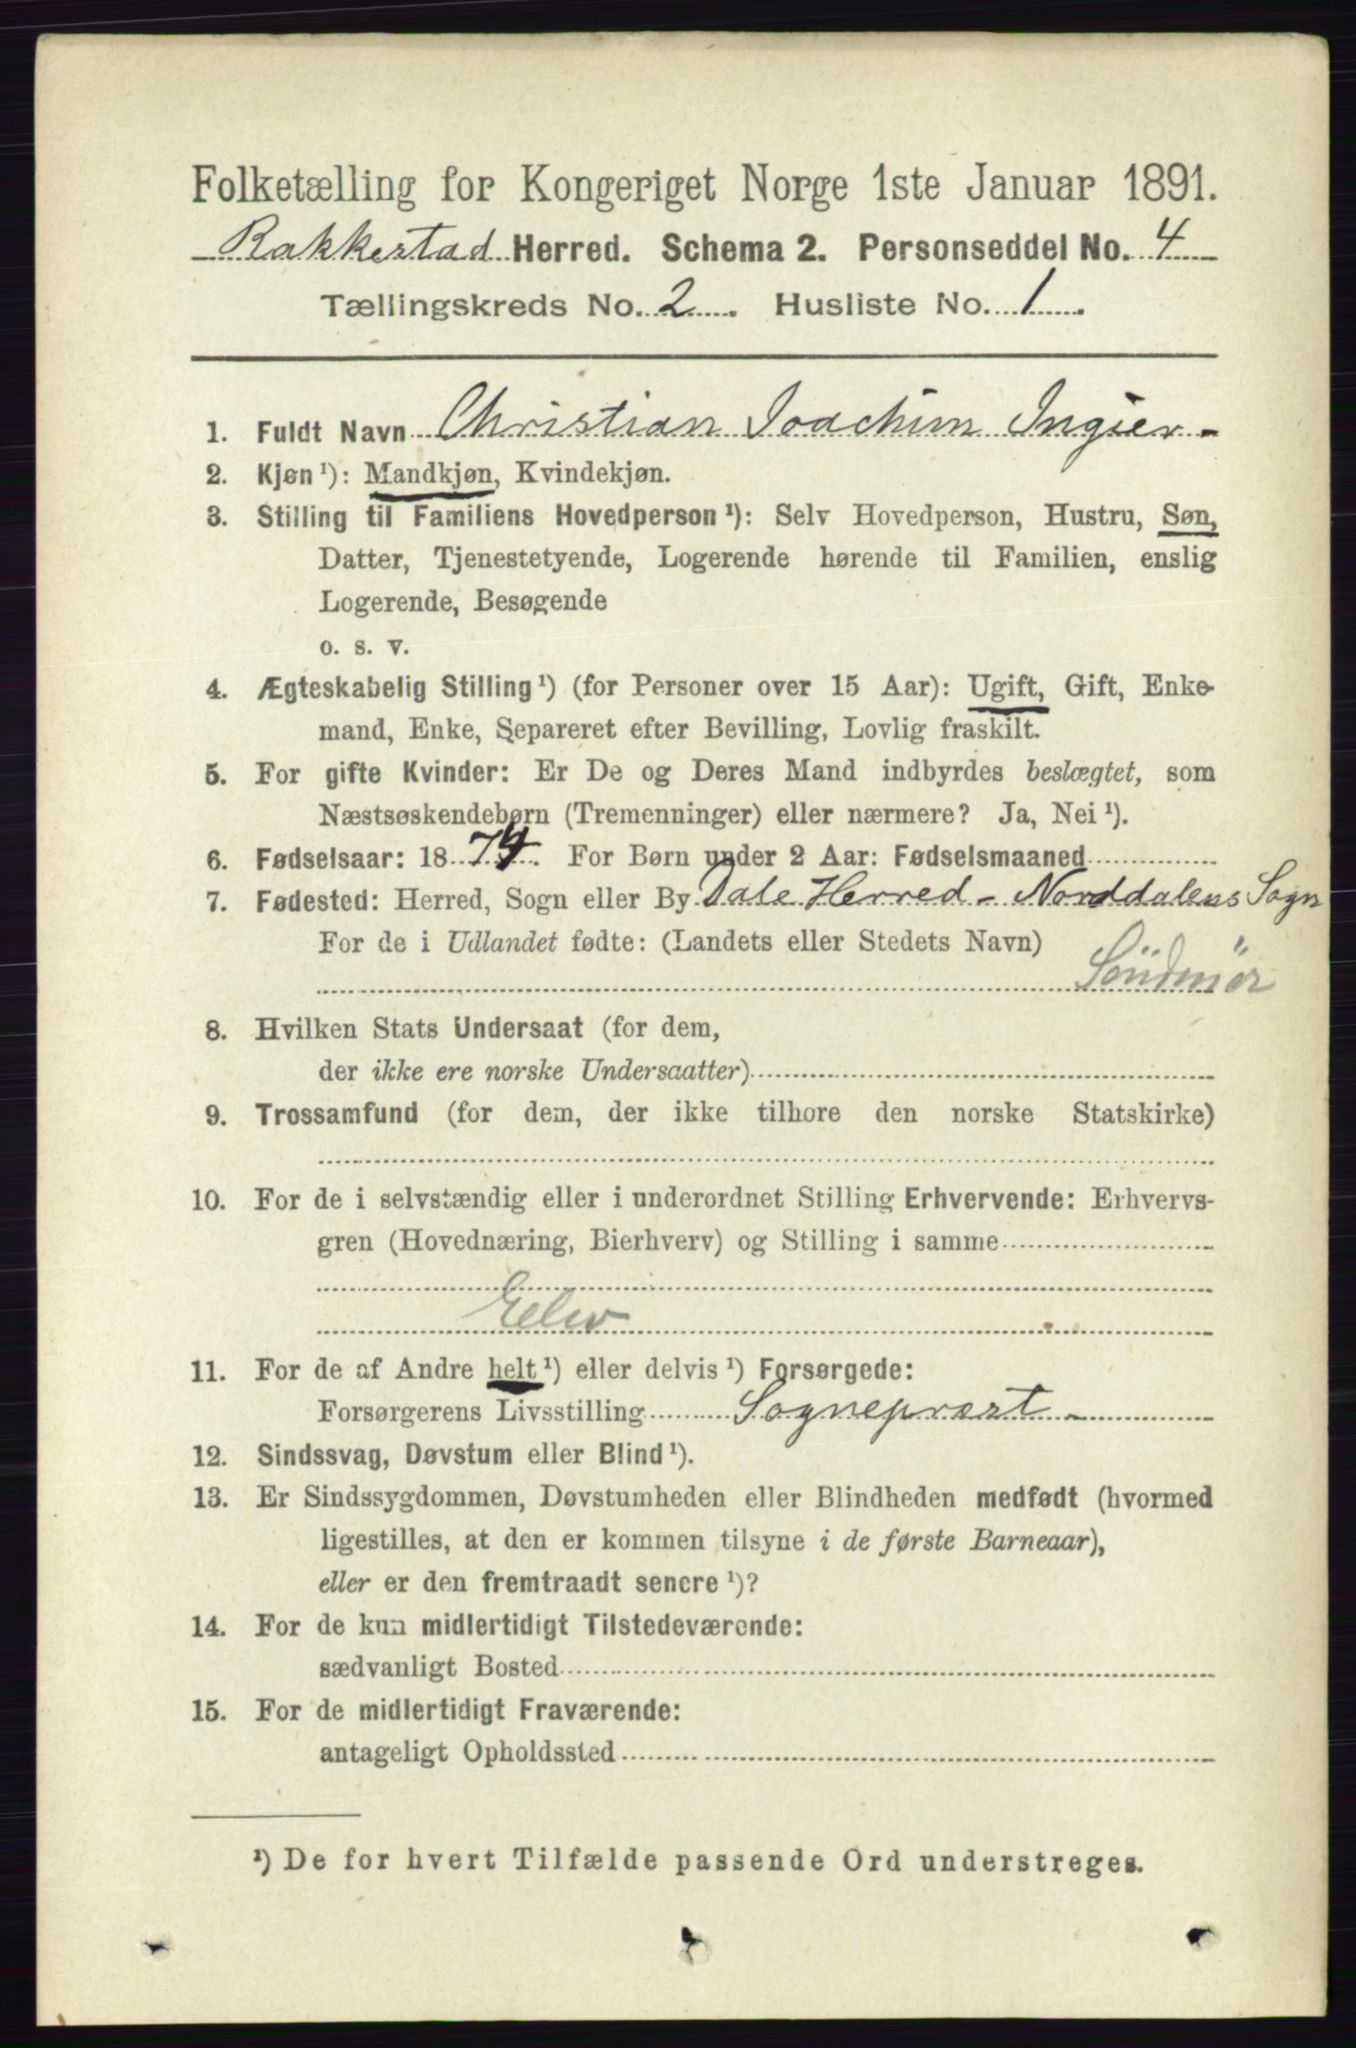 Folketælling for Kongeriget Norge 1ste Januar 1891.
Rakkestad Herred. Schema 2. Personseddel No. 4
Tællingskreds No. 2. Husliste No. 1.
1. Fuldt Navn Christian Joachim Ingier -
2. Kjøn ¹): Mandkjøn, Kvindekjøn.
3. Stilling til Familiens Hovedperson ¹): Selv Hovedperson, Hustru, Søn,
Datter, Tjenestetyende, Logerende hørende til Familien, enslig
Logerende, Besøgende
o. s. v.
4. Ægteskabelig Stilling ¹) (for Personer over 15 Aar): Ugift, Gift, Enke-
mand, Enke, Separeret efter Bevilling, Lovlig fraskilt.
5. For gifte Kvinder: Er De og Deres Mand indbyrdes beslægtet, som
Næstsøskendebørn (Tremenninger) eller nærmere? Ja, Nei ¹).
6. Fødselsaar: 1874. For Børn under 2 Aar: Fødselsmaaned
7. Fødested: Herred, Sogn eller By Dale Herred - Norddalens Sogn
For de i Udlandet fødte: (Landets eller Stedets Navn)
Söndmör
8. Hvilken Stats Undersaat (for dem,
der ikke ere norske Undersaatter)
9. Trossamfund (for dem, der ikke tilhore den norske Statskirke)
10. For de i selvstændig eller i underordnet Stilling Erhvervende: Erhvervs-
gren (Hovednæring, Bierhverv) og Stilling i samme
Elev
11. For de af Andre helt ¹) eller delvis ¹) Forsørgede:
Forsørgerens Livsstilling Sognepræst -
12. Sindssvag, Døvstum eller Blind ¹).
13. Er Sindssygdommen, Døvstumheden eller Blindheden medfødt (hvormed
ligestilles, at den er kommen tilsyne i de første Barneaar),
eller er den fremtraadt senere ¹)?
14. For de kun midlertidigt Tilstedeværende:
sædvanligt Bosted
15. For de midlertidigt Fraværende:
antageligt Opholdssted
¹) De for hvert Tilfælde passende Ord understreges.